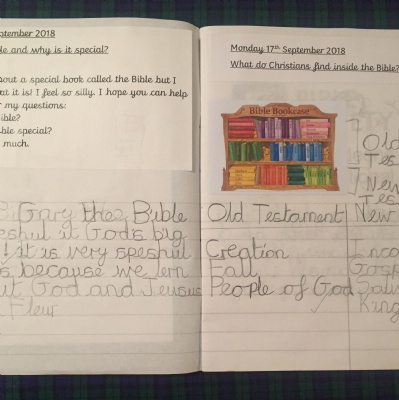 ptember 2018
le and why is it special?
bout a special book called the Bible but I
at it is! I feel so silly. I hope you can help
r my questions:
ible?
ble special?
much.
Gary thee Bible
speshul it God's big
! it is very speshul
s because we lern
ut God and Jeusus
Fleur
Monday 17th September 2018
What do Christians find inside the Bible?
Bible Bookcase
Old
Tes
New
Tes
Old Testament New
Creation Inca
Fall Gosp
People of God Salv
King